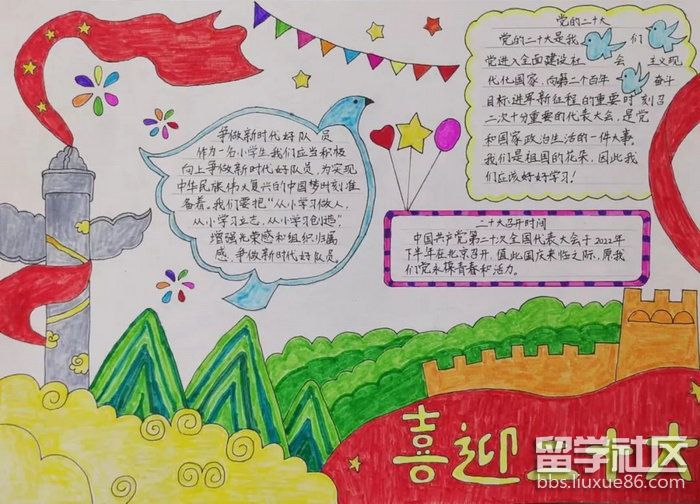 党的二十大
党的二十大是我们
党进入全面建设社会主义现
代化国家,向第二个百年奋斗
目标进军新征程的重要时刻召
二次十分重要的代表大会,是党
和国家政治生活的一件大事。
我们是祖国的花朵,因此我
们应该好好学习!
争做新时代好队员
作为一名小学生我们应当积极
向上争做新时代好队员,为实现
中华民族伟大复兴的中国梦时刻准
备着,我们要把“从小学习做人,
从小学习立志,从小学习创造”,
增强光荣感和组织归属
感,争做新时代好队员。
二十大召开时间
中国共产党第二十次全国代表大会于2022年
下半年在北京召开,值此国庆来临之际,愿我
们党永葆青春和活力。
喜迎二十大
留学社区
bbs.liuxue86.com